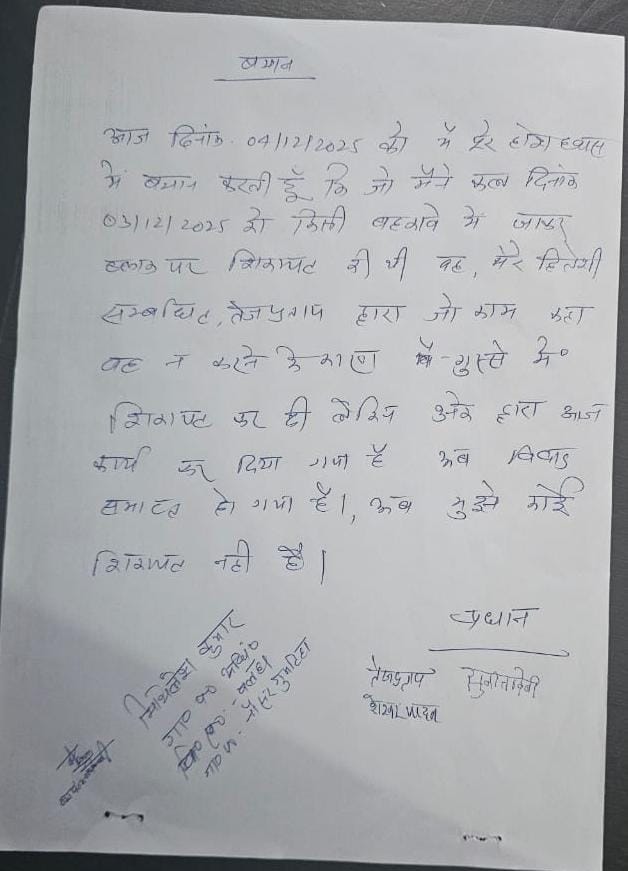 बयान
आज दिनांक 04/12/2025 को मैं पूरे होश हवास
में बयान करती हूँ कि जो मैंने कल दिनांक
03/12/2025 को किसी बहकावे में जाकर
ब्लाक पर शिकायत की थी वह, मेरे हितैशी
सम्बधित, तेजप्रताप द्वारा जो काम कहा
वह न करने के कारण मैं गुस्से में
शिकायत कर दी लेकिन उनके द्वारा आज
कार्य कर दिया गया है अब विवाद
समाप्त हो गया है।, अब मुझे कोई
शिकायत नहीं है।
प्रधान
तेजप्रताप सुनीता देवी
यादव
मिथिलेश कुमार